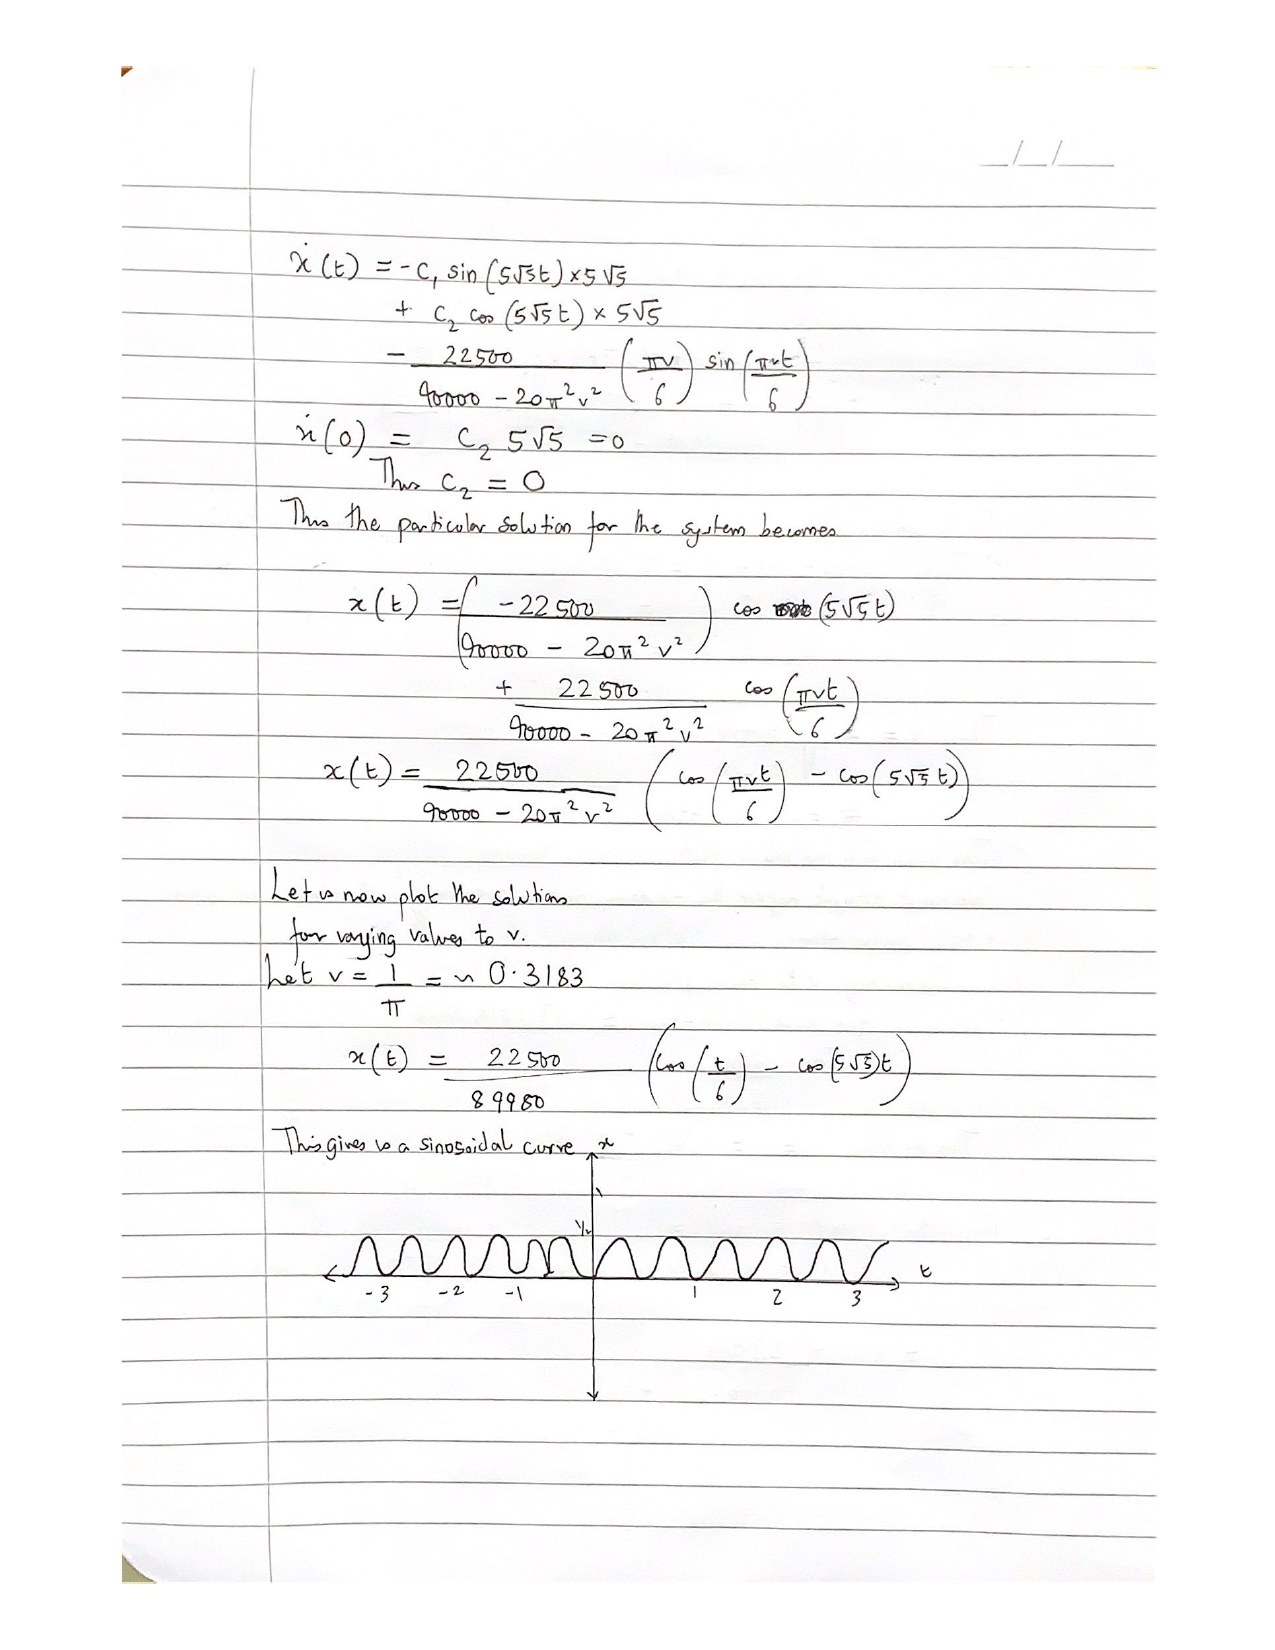 _/_/__
ẋ(t) = -C₁ sin(5√5t)×5√5
+ C₂ cos(5√5t) × 5√5
- 22500/(90000 - 20π²v²) (πv/6) sin(πvt/6)
ẋ(0) = C₂ 5√5 = 0
Thus C₂ = 0
Thus the particular solution for the system becomes
x(t) = (-22500/(90000 - 20π²v²)) cos (5√5t)
+ 22500/(90000 - 20π²v²) cos(πvt/6)
x(t) = 22500/(90000 - 20π²v²) (cos(πvt/6) - cos(5√5t))
Let us now plot the solutions
for varying values to v.
Let v = 1/π = ~ 0.3183
x(t) = 22500/89980 (cos(t/6) - cos(5√5)t)
This gives us a sinosoidal curve
x
1
1/2
t
-3 -2 -1 1 2 3